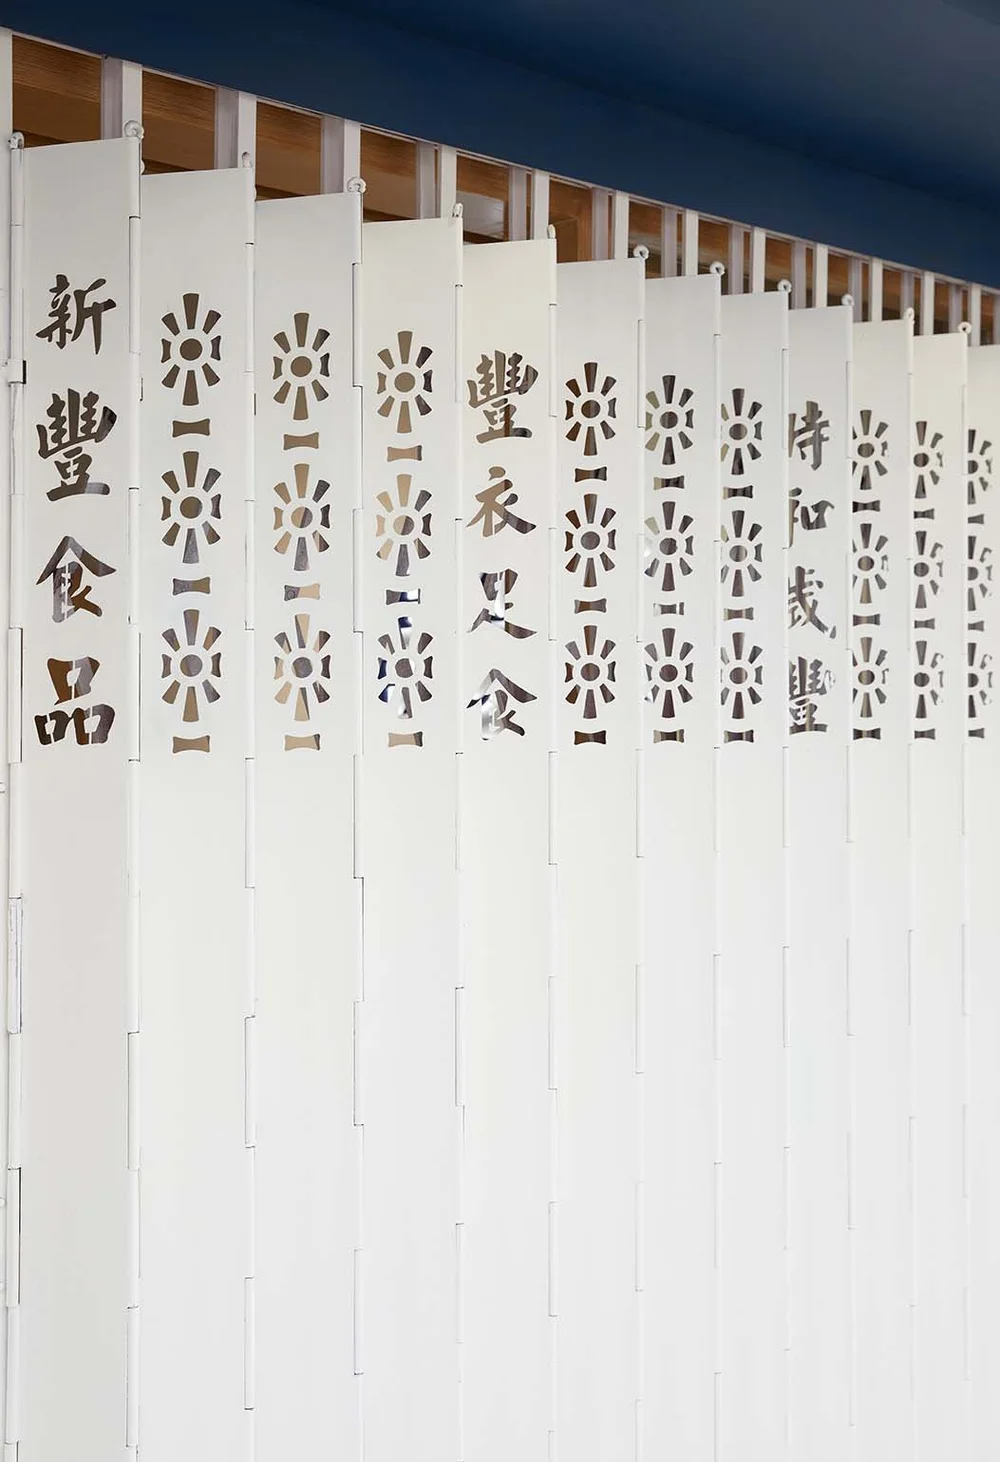 新豐食品
豐衣足食
時和歲豐